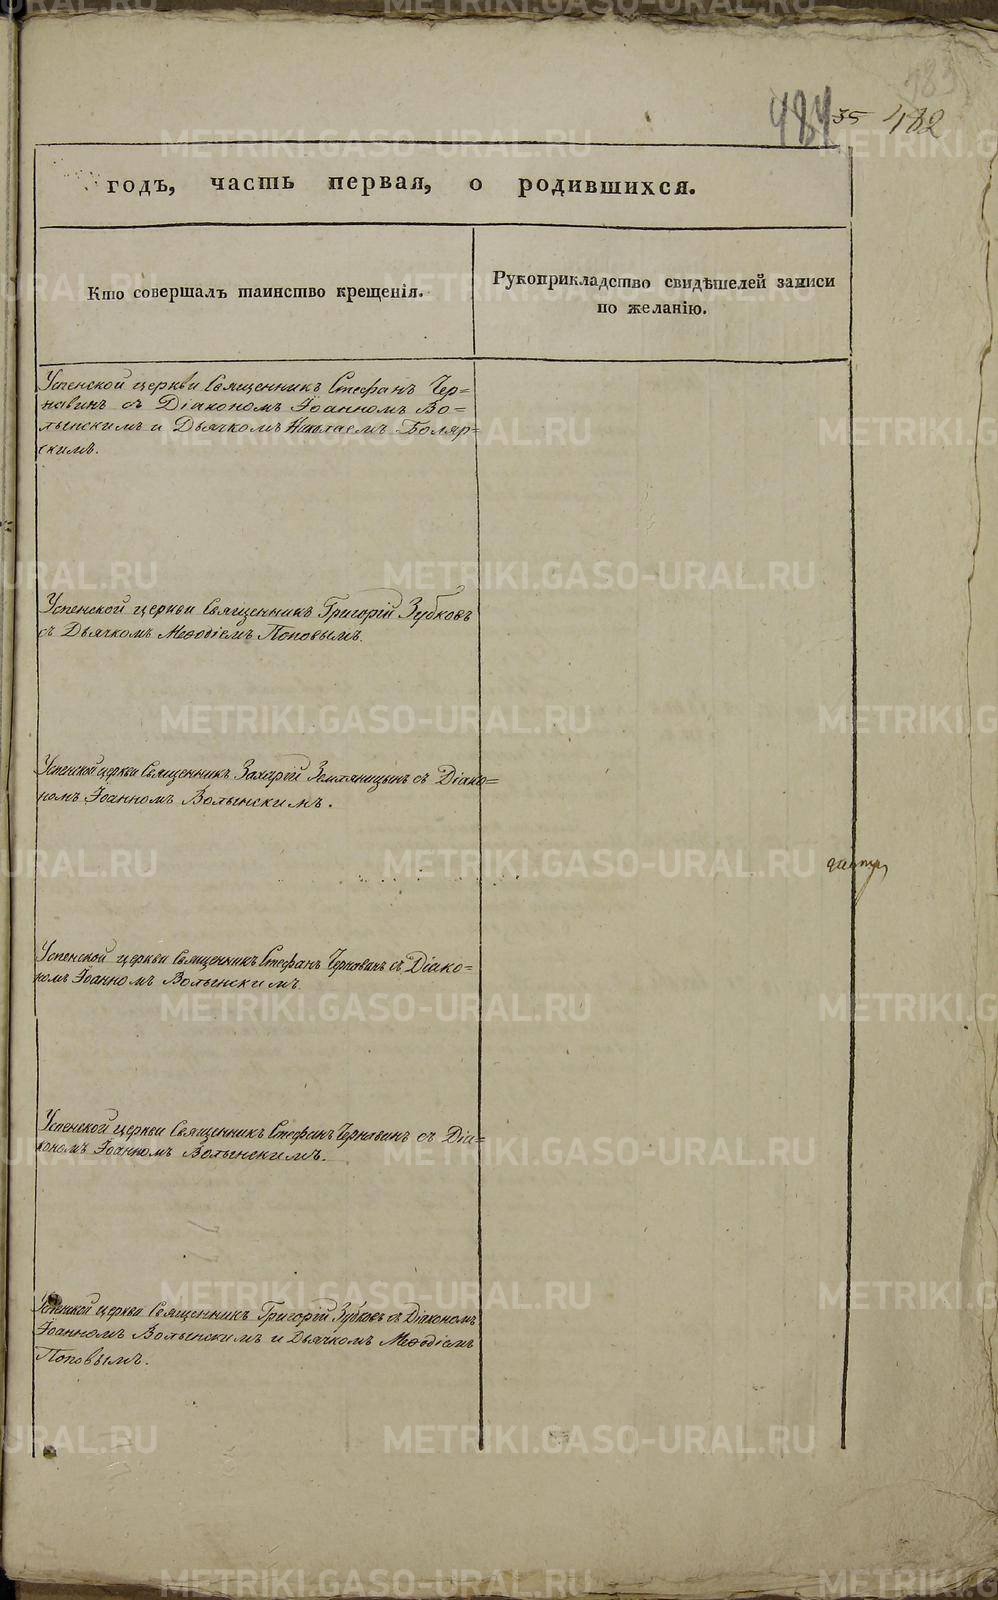 484 35 482
годъ, часть первая, о родившихся.
Кто совершалъ таинство крещенія.
Рукоприкладство свидѣтелей записи
по желанію.
Успенской церкви Священникъ Стефанъ Чер=
навинъ съ Діакономъ Іоанномъ Во=
лынскимъ и Дьячкомъ Николаемъ Боляр=
скимъ.
Успенской церкви Священникъ Григорій Зубковъ
съ Дьячкомъ Меѳодіемъ Поповымъ.
Успенской церкви Священникъ Захарій Земляницынъ съ Діако=
номъ Іоанномъ Волынскимъ.
Успенской церкви Священникъ Стефанъ Чернавинъ съ Діако=
номъ Іоанномъ Волынскимъ.
Успенской церкви Священникъ Стефанъ Чернавинъ съ Діа=
кономъ Іоанномъ Волынскимъ.
Успенской церкви Священникъ Григорій Зубковъ съ Діакономъ
Іоанномъ Волынскимъ и Дьячкомъ Меѳодіемъ
Поповымъ.
METRIKI.GASO-URAL.RU